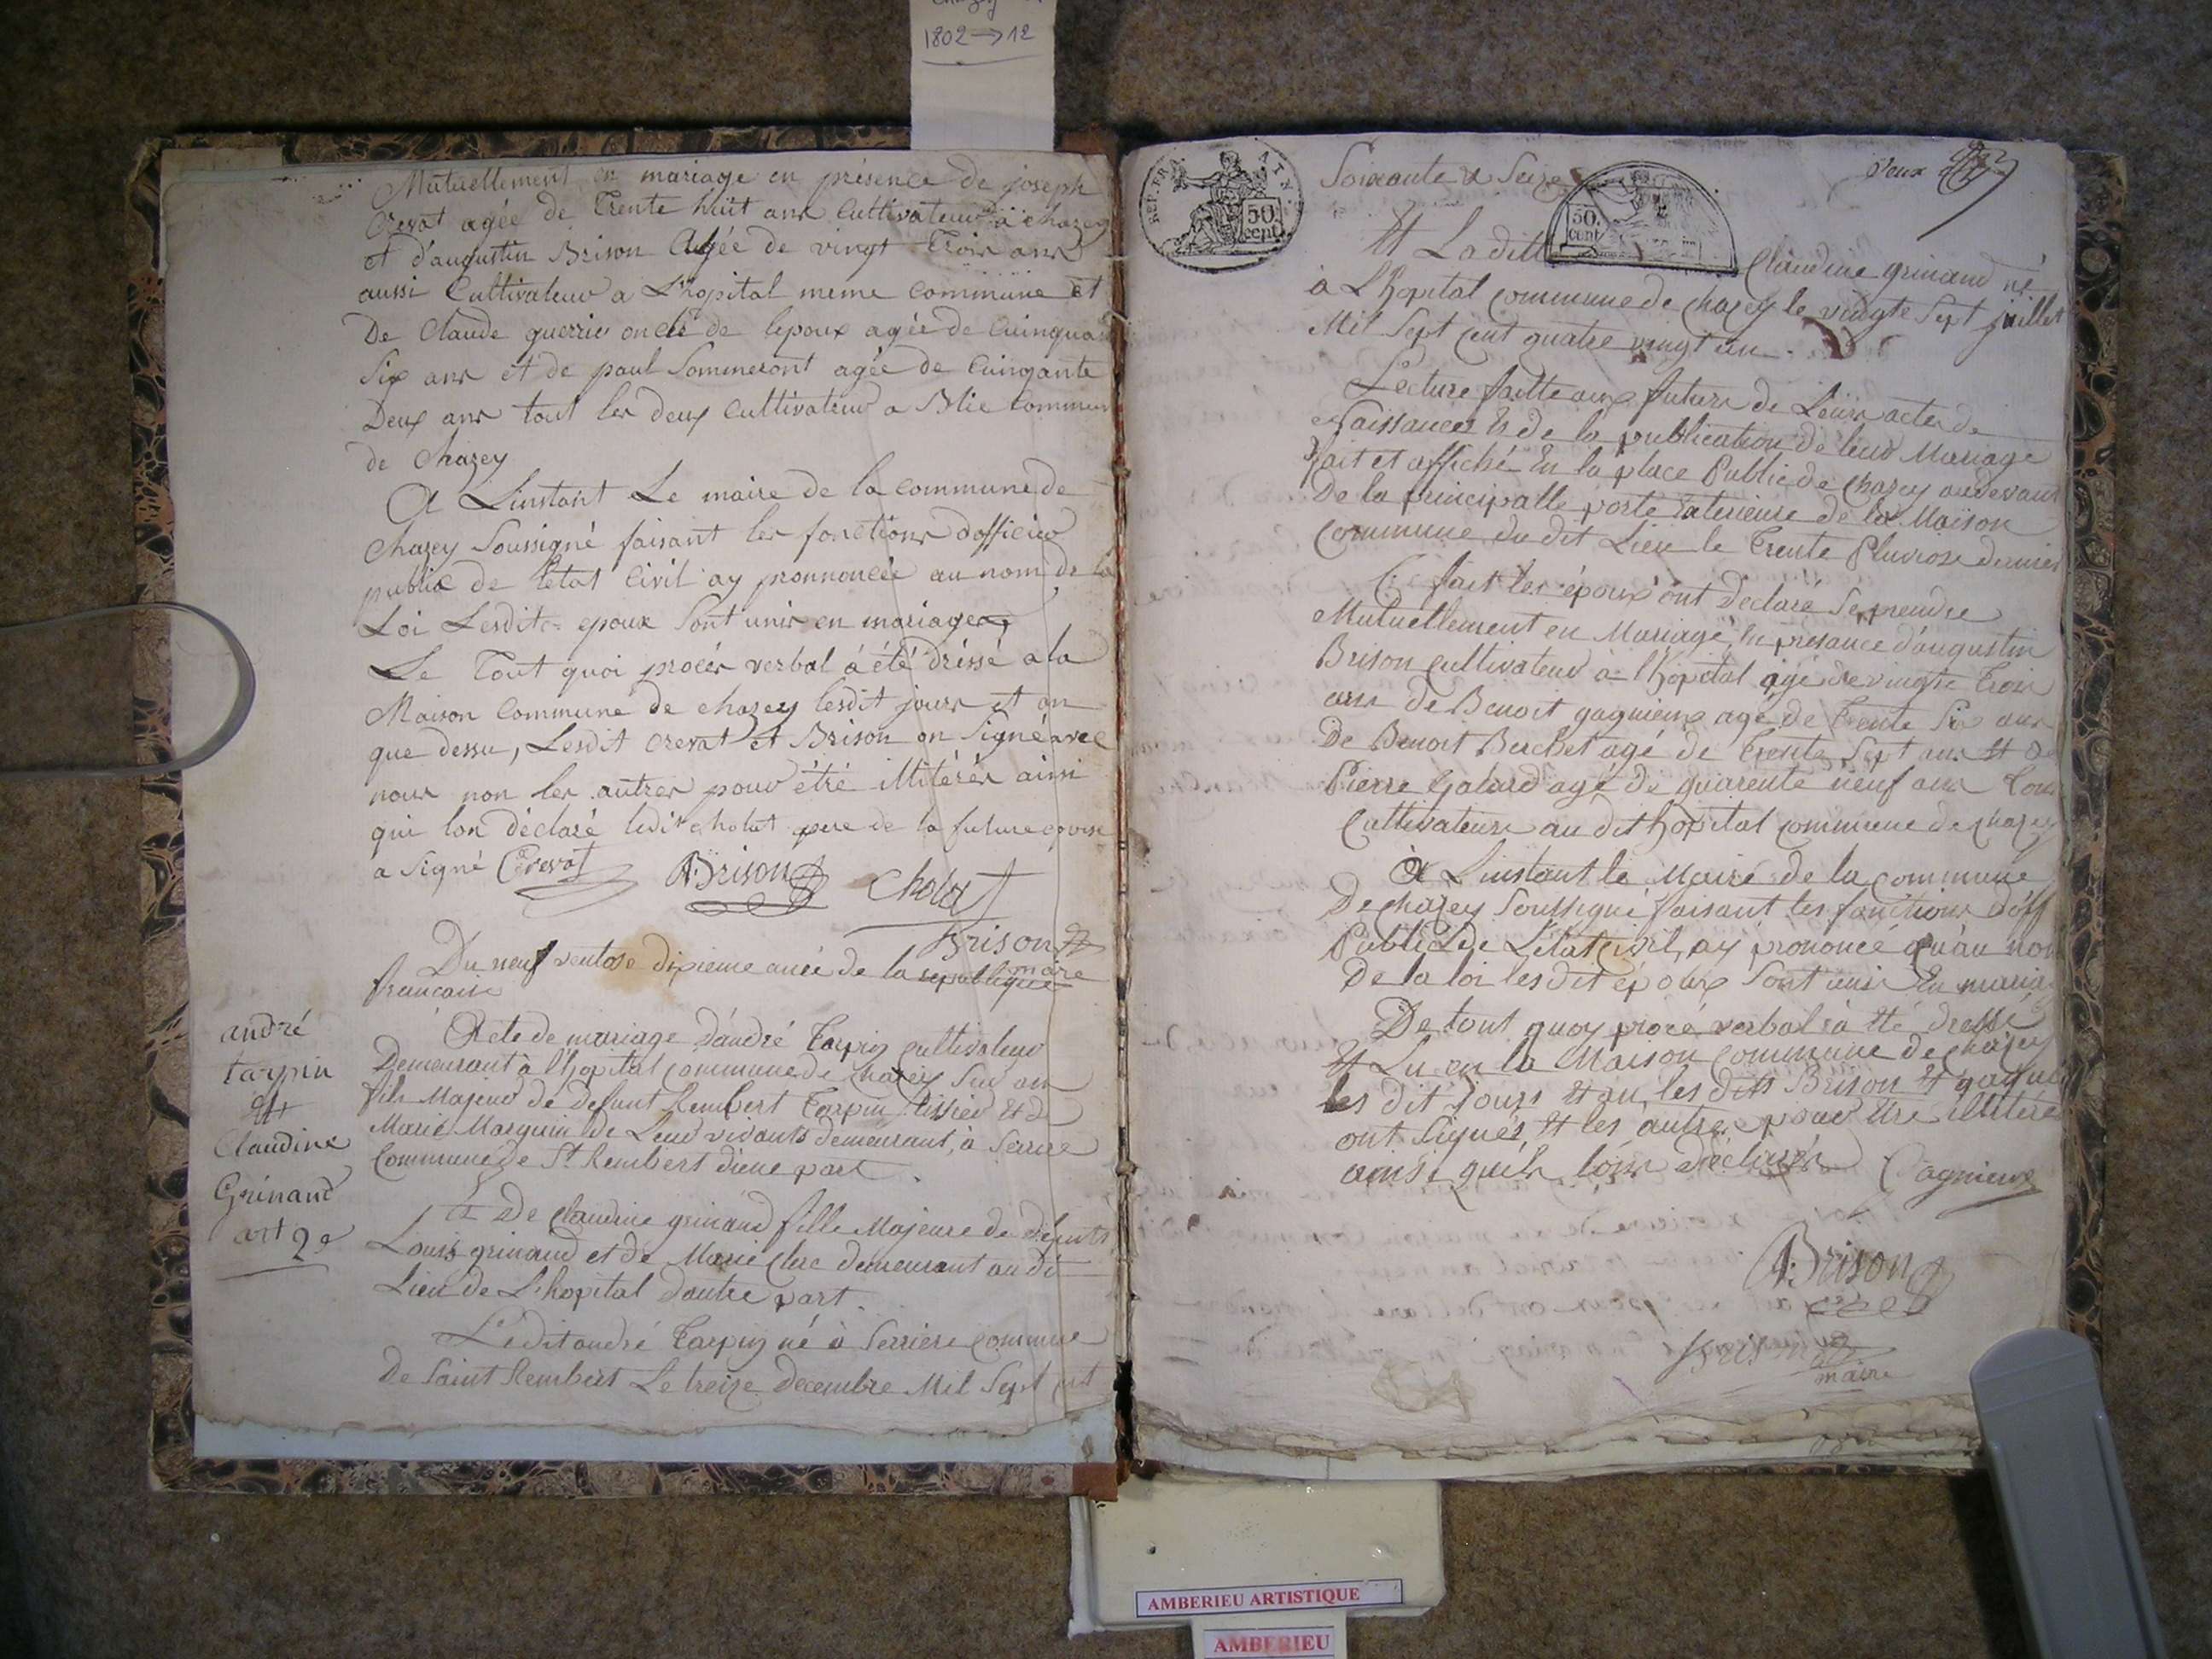 1802→12
Mutuellement en mariage en présence de joseph
Crevat agée de Trente huit ans Cultivateur a chazey
et d'augustin Brison Agée de vingt Trois ans
aussi Cultivateur a L'hopital meme Commune et
De Claude guerrie oncle de lepoux agée de Cuinquante
Six ans et de paul Sommeront agée de Cuinqante
Deux ans tout les deux Cultivateur a Blie Commun
de Chazey
A Linstant Le maire de la commune de
Chazey Soussigné faisant les fonctions dofficier
public de letat Civil ay pronnoncée au nom de la
Loi Lesdits epoux Sont unis en mariage
Le Tout quoi procés verbal á été dréssé a la
Maison Commune de chazey lesdit jours et an
que dessu, Lesdit Crevat et Brison on Signé avec
nous non les autres pour étré illitérés ainsi
qui lon déclaré ledit cholat pere de la future epouse
a Signé Crevat ABrison Cholat
Brison
maire
Du neuf ventose dixieme anée de la republique
francaise
andré
tarpin
Et
Claudine
Grinand
art 2e
Acte de mariage D'andré Tarpin Cultivateur
Demeurant à l'hopital Commune de Chazey Sur ain
fils Majeur de defunt Rembert Tarpin tissier Et de
Marie Marguin de Leur vivants demeurant, à Serriere
Commune de St Rembert d'une part.
Et De Claudine grinand fille Majeure de defunts
Louis grinand et de Marie Clerc demeurant au dit
Lieu de L'hopital dautre part.
Ledit andré Tarpin né à Serriere Commune
De Saint Rembert Le treize decembre Mil Sept cent
REP. FRA. 50 cent
Soixante & Seize
50. cent
Deux
Et Laditte Claudine grinand né
à L'hopital Commune de Chazey le vingte Sept juillet
Mil Sept Cent quatre vingt un.
Lecture faitte aux futurs de Leurs actes de
Naissances Et de la publication de leur Mariage
fait et affiché En la place Public de Chazey audevant
De la principalle porte Exterieure de la Maison
Commune du dit Lieu le Trente Pluviose dernier
Ce fait les époux ont Déclaré Se prendre
Mutuellement en Mariage, En présance d'augustin
Brison Cultivateur à l'hopital agé de vingte Trois
ans de Benoit gagnieux agé de Trente Six ans
De Benoit Berchet agé de Trente Sept ans Et de
Pierre Galard agé de quarente neuf ans Tous
Cultivateurs au dit hopital Commune de chazey
à L'instant le Maire de la Commune
De chazey Soussigné faisant les fonctions d'off
Public de L'état Civil, ay prononcé qu'au nom
De la loi les dit époux Sont unis En mariag
De tout quoy procé verbal à Eté dressé
Et Lu en la Maison Commune de chazey
les dit Jours Et an, les dits Brison Et gagni
ont Signés, Et les autres pour Etre illitéré
ainsi qu'ils l'ons Déclarés Gagnieux
ABrison
Brison
maire
AMBERIEU ARTISTIQUE
AMBERIEU